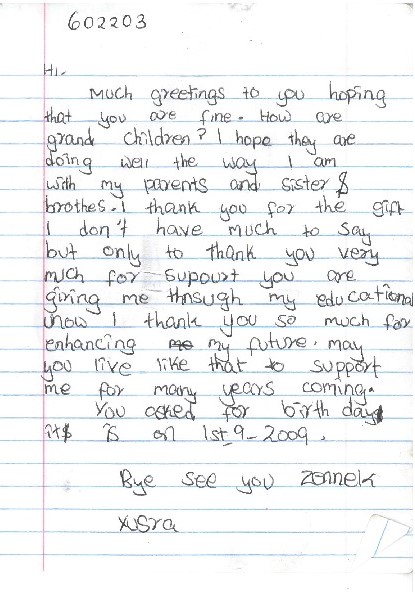 602203
Hi.
Much greetings to you hoping
that you are fine. How are
grand children? I hope they are
doing well the way I am
with my parents and sister &
brothes. I thank you for the gift
I don't have much to say
but only to thank you very
much for supourt you are
giving me through my educational
now I thank you so much for
enhancing me my future. may
you live like that to support
me for many years coming.
You asked for birth day
it$ is on 1st 9-2009.
Bye see you
Xusra